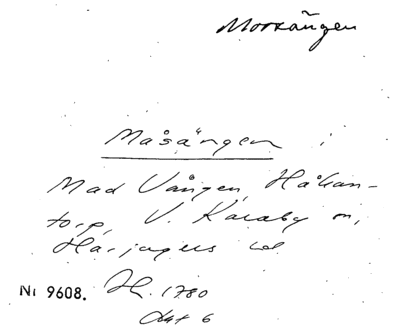 Morsängen
Måsängen i
Mad Vången, Håkan-
torp, V. Kåraby sn,
Harjagers hd
Nr 9608. Hr. 1780
akt 6